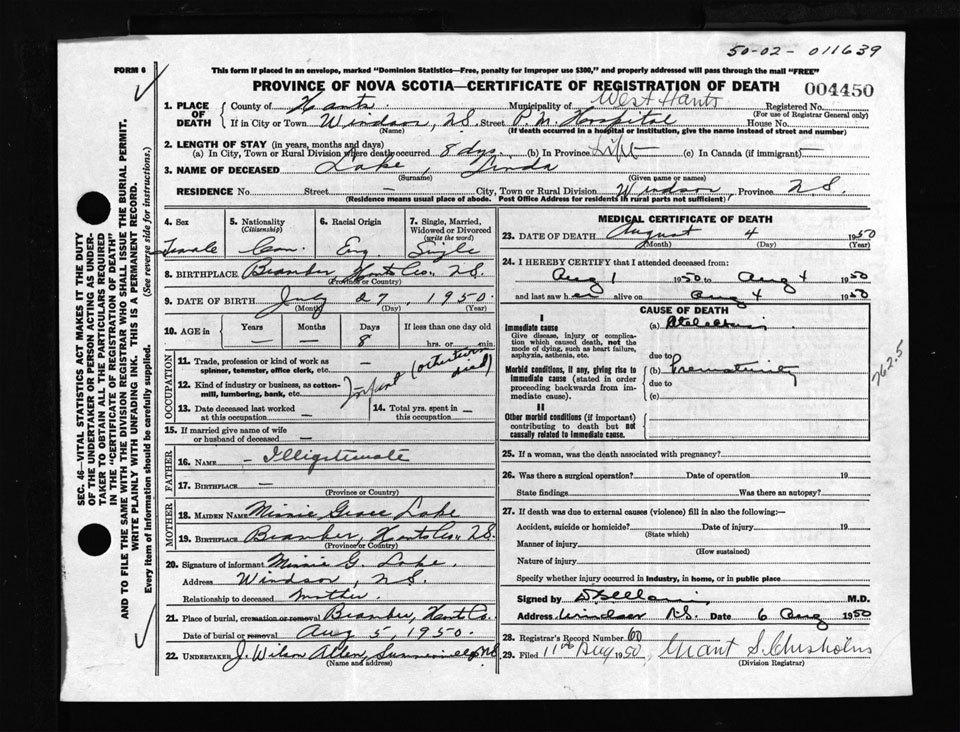 50-02- 011639
FORM 6
This form if placed in an envelope, marked "Dominion Statistics—Free, penalty for improper use $300," and properly addressed will pass through the mail "FREE"
PROVINCE OF NOVA SCOTIA—CERTIFICATE OF REGISTRATION OF DEATH
004450
1. PLACE OF DEATH County of Hants Municipality of West Hants Registered No.
(For use of Registrar General only)
If in City or Town Windsor, N.S. Street P.M. Hospital House No.
(Name) (If death occurred in a hospital or institution, give the name instead of street and number)
2. LENGTH OF STAY (in years, months and days)
(a) In City, Town or Rural Division where death occurred 8 dys. (b) In Province Life (c) In Canada (if immigrant) —
3. NAME OF DECEASED Lake, Linda
(Surname) (Given name or names)
RESIDENCE No. Street — City, Town or Rural Division Windsor, Province N.S.
(Residence means usual place of abode. Post Office Address for residents in rural parts not sufficient)
4. Sex 5. Nationality (Citizenship) 6. Racial Origin 7. Single, Married, Widowed or Divorced (write the word)
Female Can. Eng. Single
8. BIRTHPLACE Hants Co., N.S.
(Province or Country)
9. DATE OF BIRTH July 27, 1950.
(Month) (Day) (Year)
10. AGE in Years Months Days If less than one day old
— — 8 hrs. or min.
OCCUPATION
11. Trade, profession or kind of work as spinner, teamster, office clerk, etc. —
12. Kind of industry or business, as cotton-mill, lumbering, bank, etc. Infant (other twin died)
13. Date deceased last worked at this occupation — 14. Total yrs. spent in this occupation —
15. If married give name of wife or husband of deceased —
FATHER
16. Name — Illigitemate
17. Birthplace —
(Province or Country)
MOTHER
18. Maiden Name Minnie Grace Lake
19. Birthplace Hants Co., N.S.
(Province or Country)
20. Signature of informant Minnie G. Lake.
Address Windsor, N.S.
Relationship to deceased mother.
21. Place of burial, cremation or removal Hants Co.
Date of burial or removal Aug 5, 1950.
22. UNDERTAKER J. Wilson Allen, Summerville, N.S.
(Name and address)
MEDICAL CERTIFICATE OF DEATH
23. DATE OF DEATH August 4 1950
(Month) (Day) (Year)
24. I HEREBY CERTIFY that I attended deceased from:
Aug 1 1950 to Aug 4 1950
and last saw her alive on Aug 4 1950
CAUSE OF DEATH
I
Immediate cause
Give disease, injury or complication which caused death, not the mode of dying, such as heart failure, asphyxia, asthenia, etc.
(a) Atelectasis
due to
Morbid conditions, if any, giving rise to immediate cause (stated in order proceeding backwards from immediate cause).
(b) Prematurity
due to
(c)
762.5
II
Other morbid conditions (if important) contributing to death but not causally related to immediate cause.
25. If a woman, was the death associated with pregnancy?
26. Was there a surgical operation? Date of operation 19
State findings Was there an autopsy?
27. If death was due to external causes (violence) fill in also the following:—
Accident, suicide or homicide? Date of injury 19
(State which)
Manner of injury
(How sustained)
Nature of injury
Specify whether injury occurred in industry, in home, or in public place
Signed by M.D.
Address Windsor N.S. Date 6 Aug 1950
28. Registrar's Record Number 60
29. Filed 11th Aug 1950 Grant S. Chisholm
(Division Registrar)
SEC. 46—VITAL STATISTICS ACT MAKES IT THE DUTY
OF THE UNDERTAKER OR PERSON ACTING AS UNDER-
TAKER TO OBTAIN ALL THE PARTICULARS REQUIRED
IN THE "CERTIFICATE OF REGISTRATION OF DEATH"
AND TO FILE THE SAME WITH THE DIVISION REGISTRAR WHO SHALL ISSUE THE BURIAL PERMIT.
WRITE PLAINLY WITH UNFADING INK. THIS IS A PERMANENT RECORD.
Every item of information should be carefully supplied. (See reverse side for instructions.)